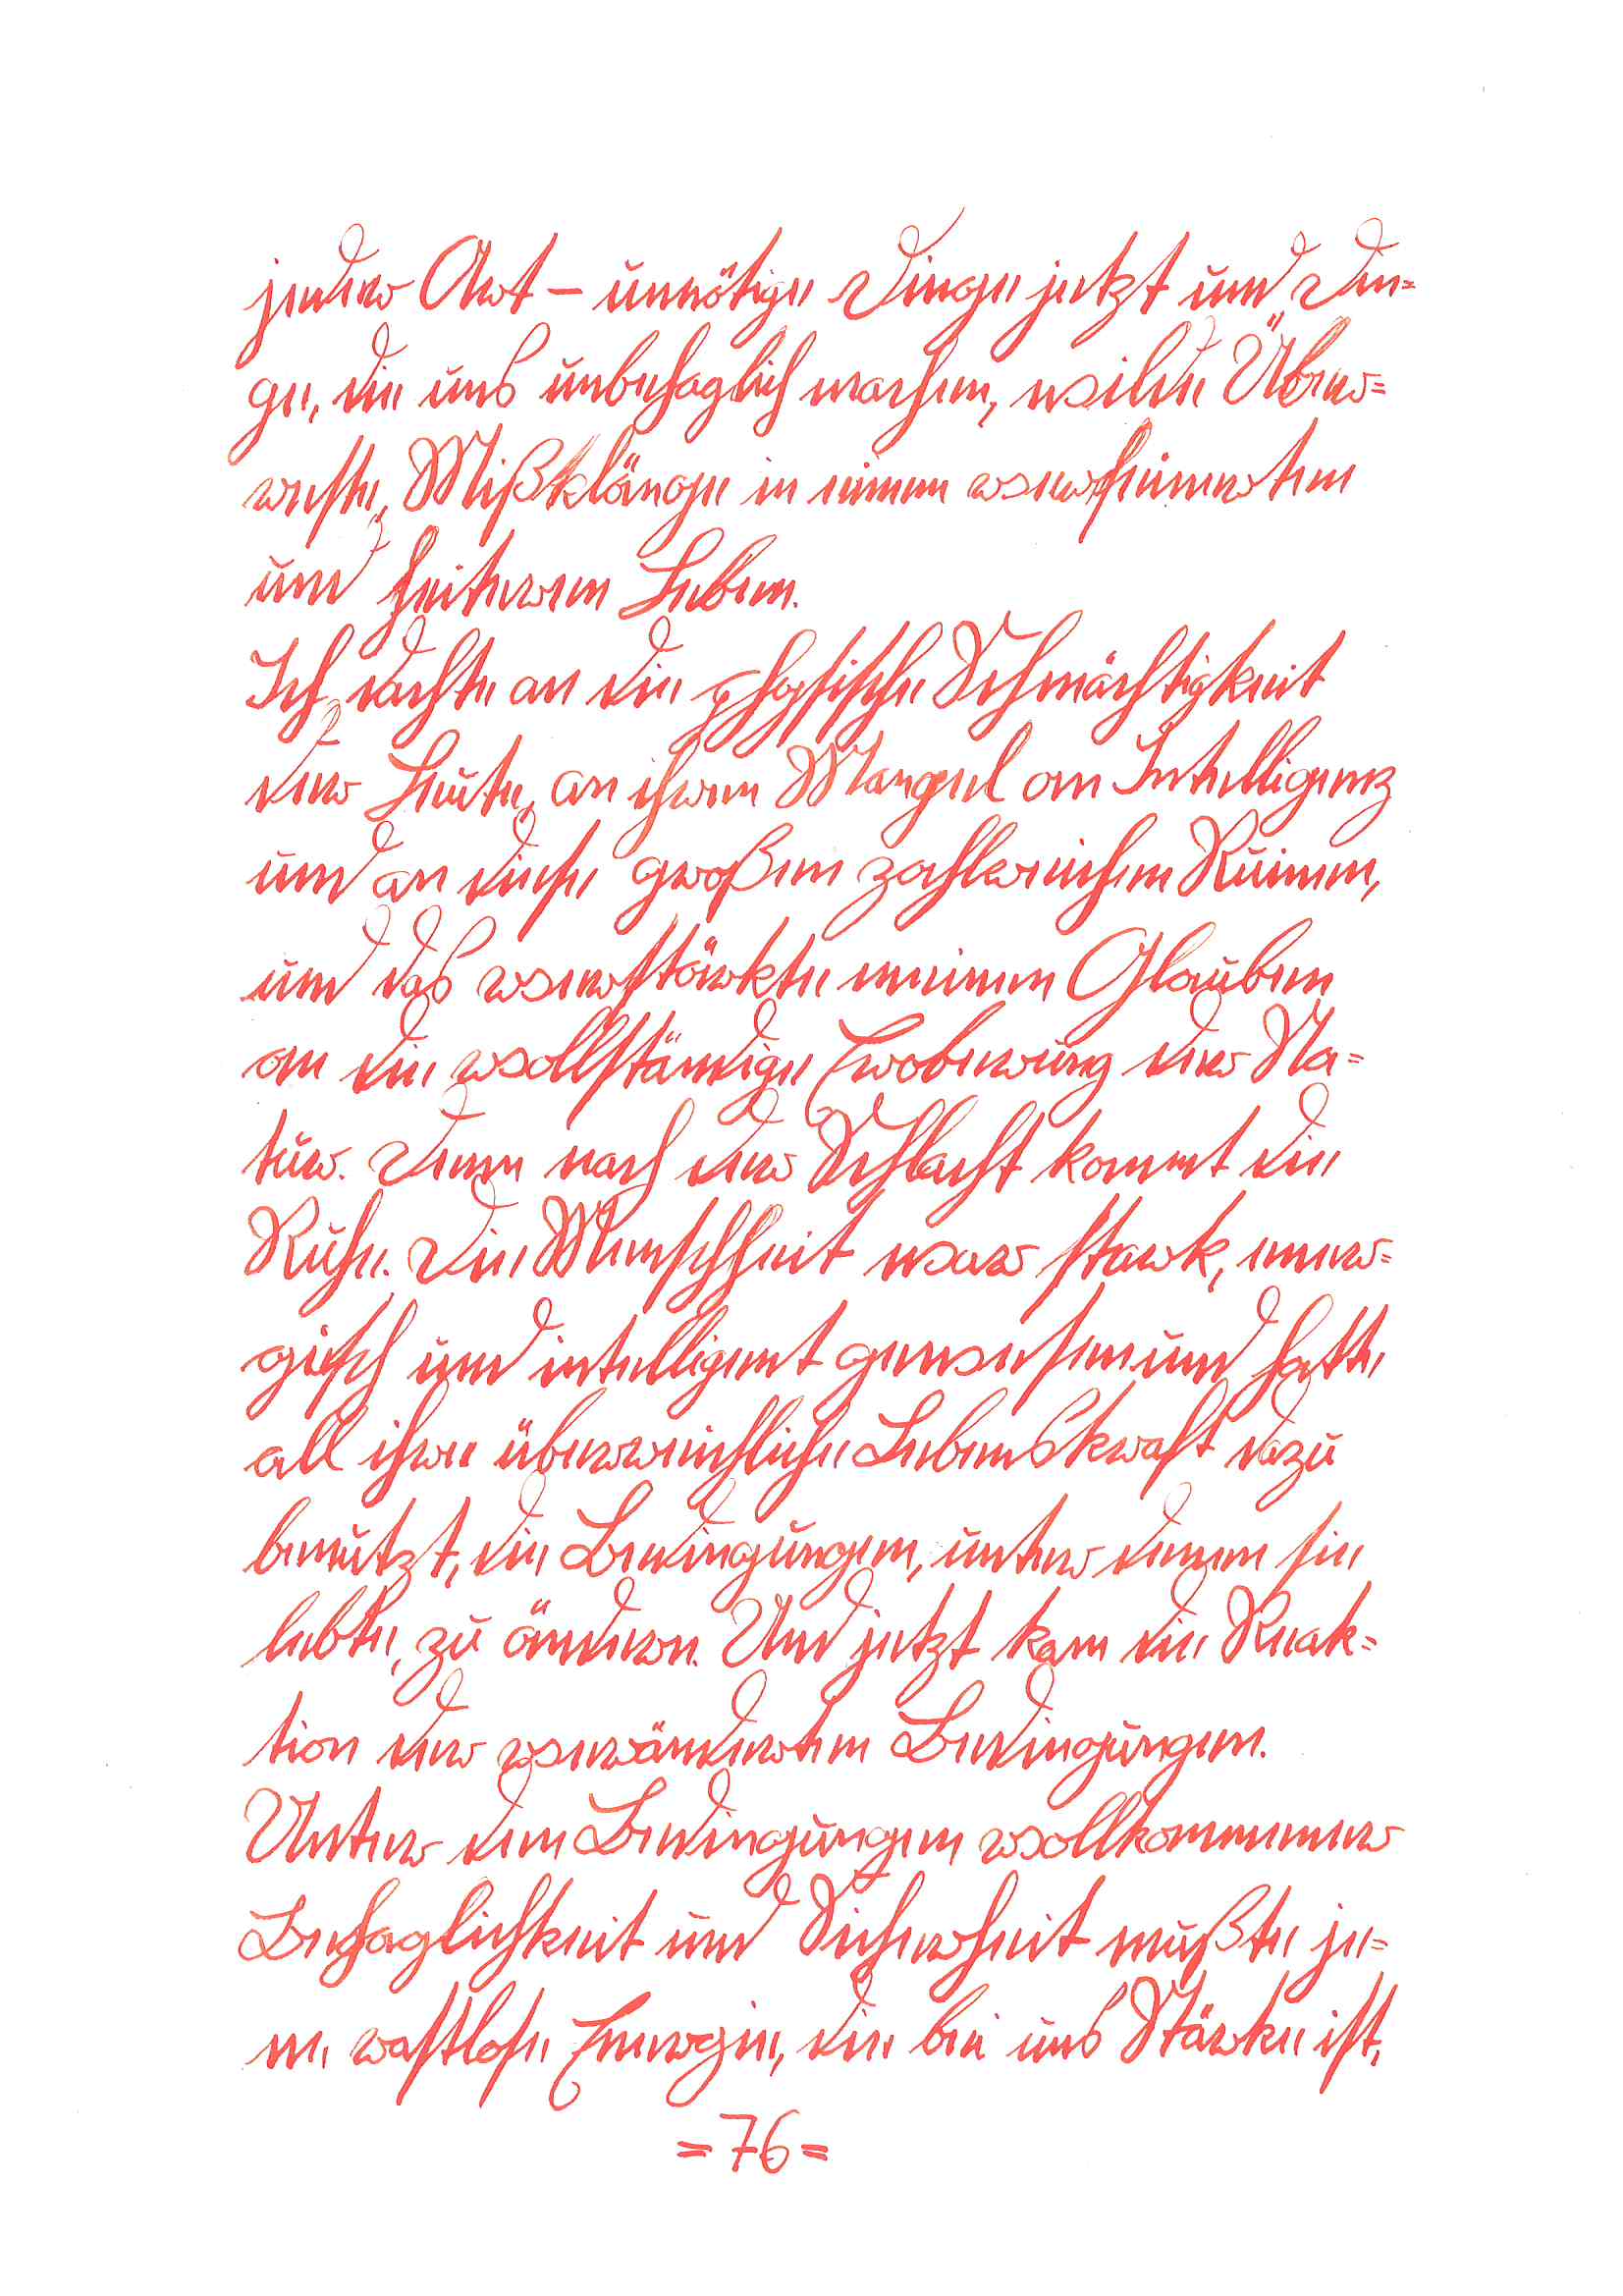 jeder Art – unnötige Dinge jetzt und Din=
ge, die uns unbehaglich machen, wilde Über=
reste, Mißklänge in einem verfeinerten
und heiteren Leben.
Ich dachte an die physische Schmächtigkeit
der Leute, an ihren Mangel an Intelligenz
und an diese großen zahlreichen Ruinen,
und das verstärkte meinen Glauben
an die vollständige Eroberung der Na=
tur. Denn nach der Schlacht kommt die
Ruhe. Die Menschheit war stark, ener=
gisch und intelligent gewesen und hatte
all ihre überreichliche Lebenskraft dazu
benutzt, die Bedingungen, unter denen sie
lebte, zu ändern. Und jetzt kam die Reak=
tion der veränderten Bedingungen.
Unter den Bedingungen vollkommener
Behaglichkeit und Sicherheit mußte je=
ne rastlose Energie, die bei uns Stärke ist,
=76=